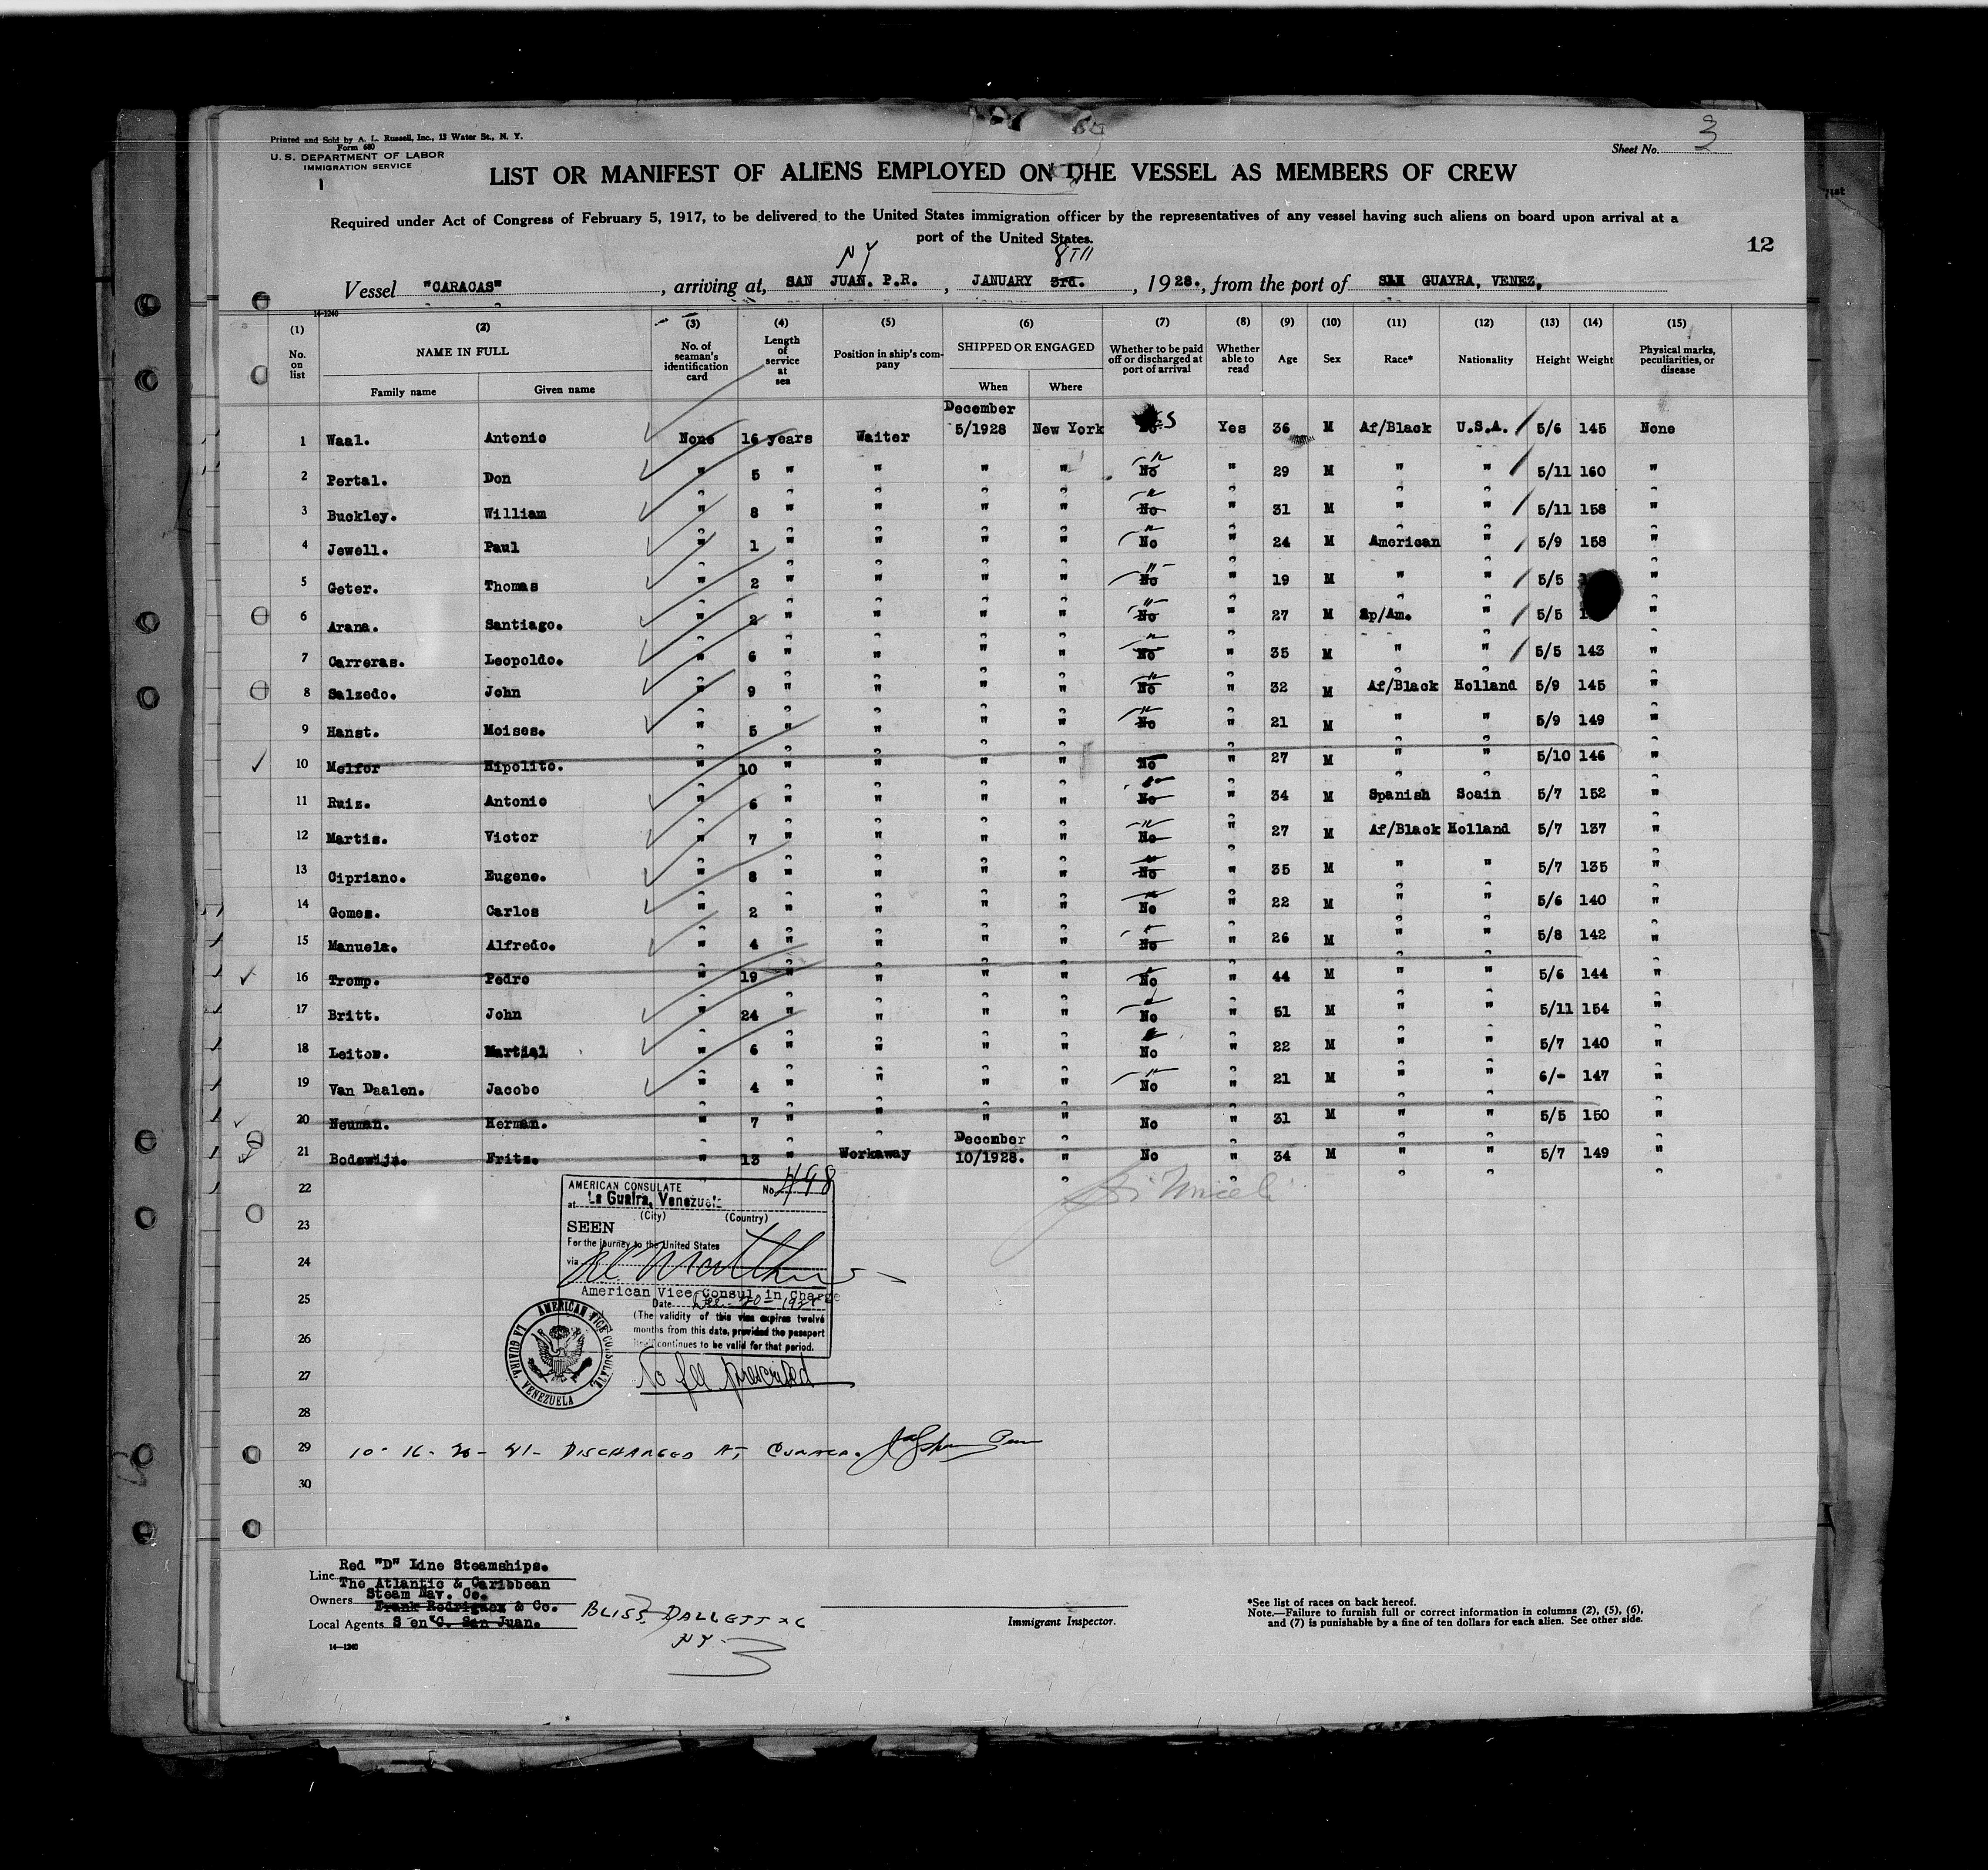 Printed and Sold by A. L. Russell, Inc., 13 Water St., N. Y.
Form 680
U. S. DEPARTMENT OF LABOR
IMMIGRATION SERVICE
Sheet No. 3
LIST OR MANIFEST OF ALIENS EMPLOYED ON THE VESSEL AS MEMBERS OF CREW
Required under Act of Congress of February 5, 1917, to be delivered to the United States immigration officer by the representatives of any vessel having such aliens on board upon arrival at a
port of the United States.
12
NY 8TH
Vessel "CARACAS", arriving at, SAN JUAN. P.R., JANUARY 3rd., 1928., from the port of GUAYRA, VENEZ.
14-1240
(1) (2) (3) (4) (5) (6) (7) (8) (9) (10) (11) (12) (13) (14) (15)
No. on list NAME IN FULL Family name Given name No. of seaman's identification card Length of service at sea Position in ship's company SHIPPED OR ENGAGED When Where Whether to be paid off or discharged at port of arrival Whether able to read Age Sex Race* Nationality Height Weight Physical marks, peculiarities, or disease
December
1 Waal. Antonio None 16 years Waiter 5/1928 New York Yes 36 M Af/Black U.S.A. 5/6 145 None
2 Pertal. Don " 5 " " " " No " 29 M " " 5/11 160 "
3 Buckley. William " 8 " " " " No " 31 M " " 5/11 158 "
4 Jewell. Paul " 1 " " " " No " 24 M American " 5/9 158 "
5 Geter. Thomas " 2 " " " " No " 19 M " " 5/5 "
6 Arana. Santiago. " 2 " " " " No " 27 M Sp/Am. " 5/5 "
7 Carreras. Leopoldo. " 6 " " " " No " 35 M " " 5/5 143 "
8 Salzedo. John " 9 " " " " No " 32 M Af/Black Holland 5/9 145 "
9 Hanst. Moises. " 5 " " " " No " 21 M " " 5/9 149 "
10 Melfor Hipolito. " 10 " " " " No " 27 M " " 5/10 146 "
11 Ruiz. Antonio " 6 " " " " No " 34 M Spanish Soain 5/7 152 "
12 Martis. Victor " 7 " " " " No " 27 M Af/Black Holland 5/7 137 "
13 Cipriano. Eugene. " 8 " " " " No " 35 M " " 5/7 135 "
14 Gomes. Carlos " 2 " " " " No " 22 M " " 5/6 140 "
15 Manuela. Alfredo. " 4 " " " " No " 26 M " " 5/8 142 "
16 Tromp. Pedro " 19 " " " " No " 44 M " " 5/6 144 "
17 Britt. John " 24 " " " " No " 51 M " " 5/11 154 "
18 Leitos. Martial " 6 " " " " No " 22 M " " 5/7 140 "
19 Van Daalen. Jacobo " 4 " " " " No " 21 M " " 6/- 147 "
20 Neuman. Herman. " 7 " " " " No " 31 M " " 5/5 150 "
December
21 Bodewijn. Frits. " 13 " Workaway 10/1928. " No " 34 M " " 5/7 149 "
22
23
24
25
26
27
28
29
30
AMERICAN CONSULATE No. 498
at La Guaira, Venezuela
(City) (Country)
SEEN
For the journey to the United States
via
American Vice Consul in Charge
Date Dec. 20 - 1928
(The validity of this visa expires twelve
months from this date, provided the passport
itself continues to be valid for that period.
AMERICAN VICE CONSULATE
LA GUAIRA, VENEZUELA
No fee prescribed
10- 16- 20- 21- DISCHARGED AT CURACA.
Line Red "D" Line Steamships.
The Atlantic & Caribbean
Owners Steam Nav. Co.
Frank Rodriguez & Co.
Local Agents S en C. San Juan.
14—1240
BLISS DALLETT & C
NY.
Immigrant Inspector.
*See list of races on back hereof.
Note.—Failure to furnish full or correct information in columns (2), (5), (6),
and (7) is punishable by a fine of ten dollars for each alien. See other side.